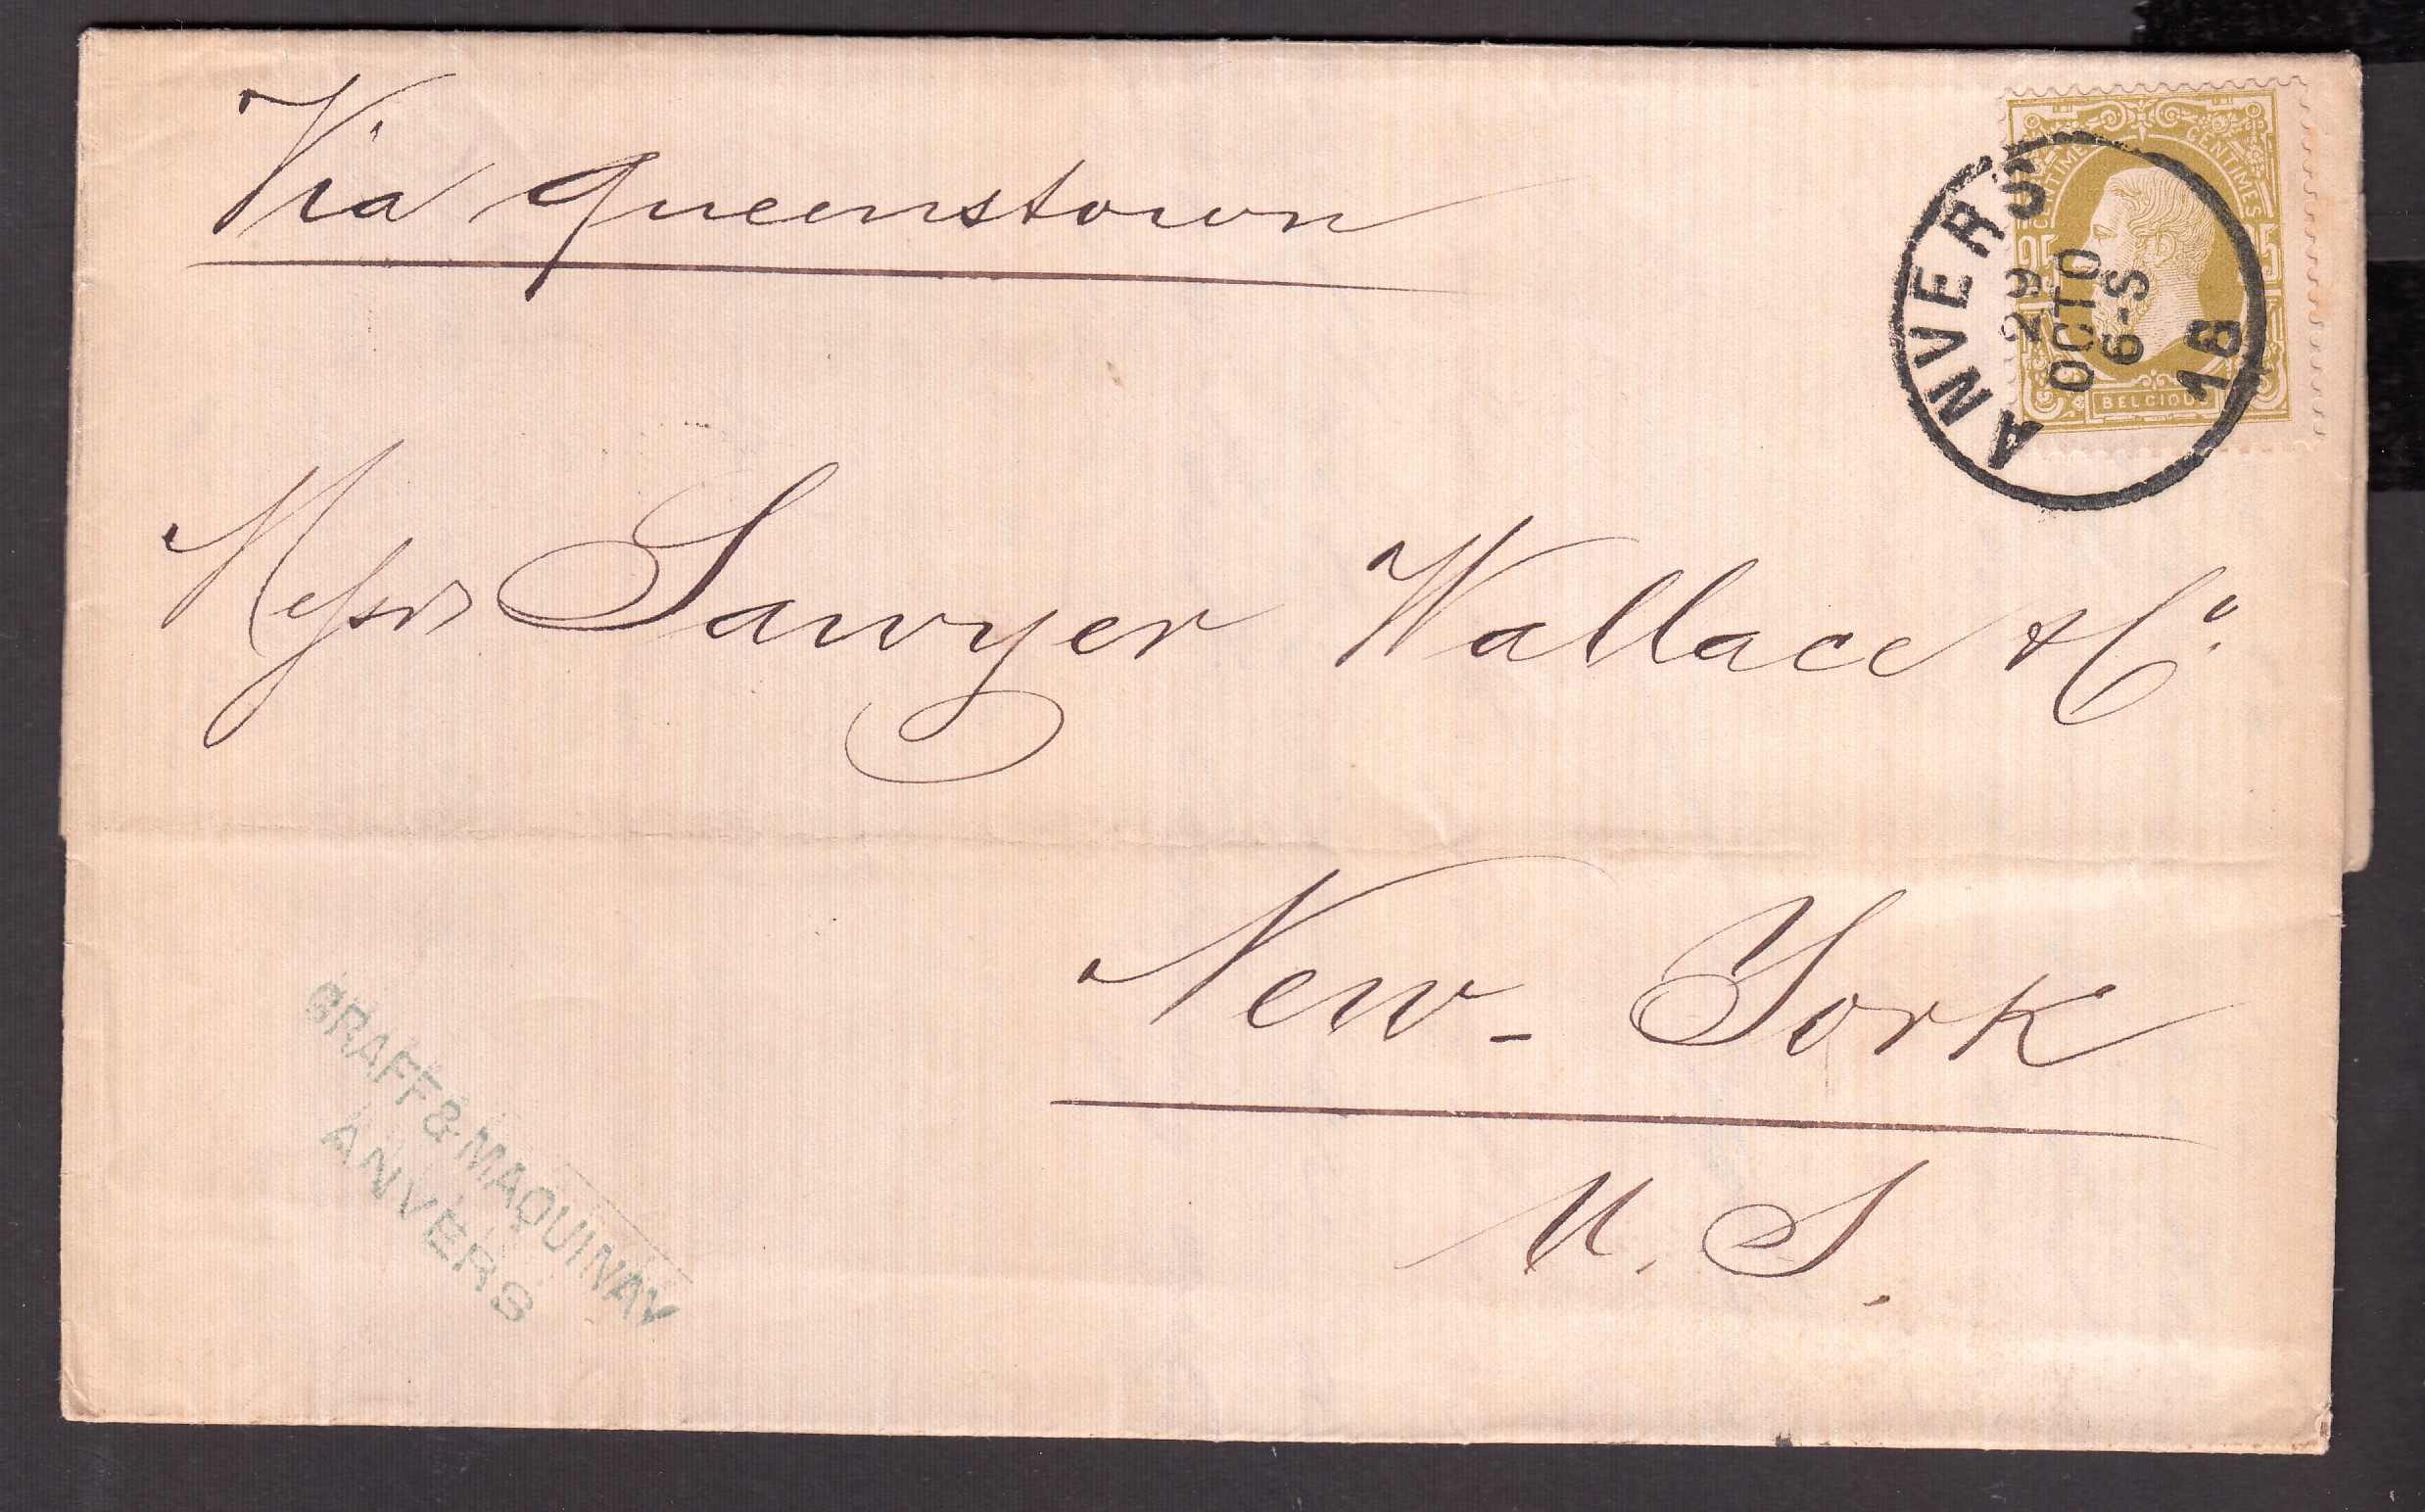 Via Queenstown
CENTIMES CENTIMES
25 25
BELGIQUE
ANVERS
29
OCTO
6-S
18
Messrs Sawyer Wallace & Co.
New-York
U. S.
GRAFF & MAQUINAY
ANVERS